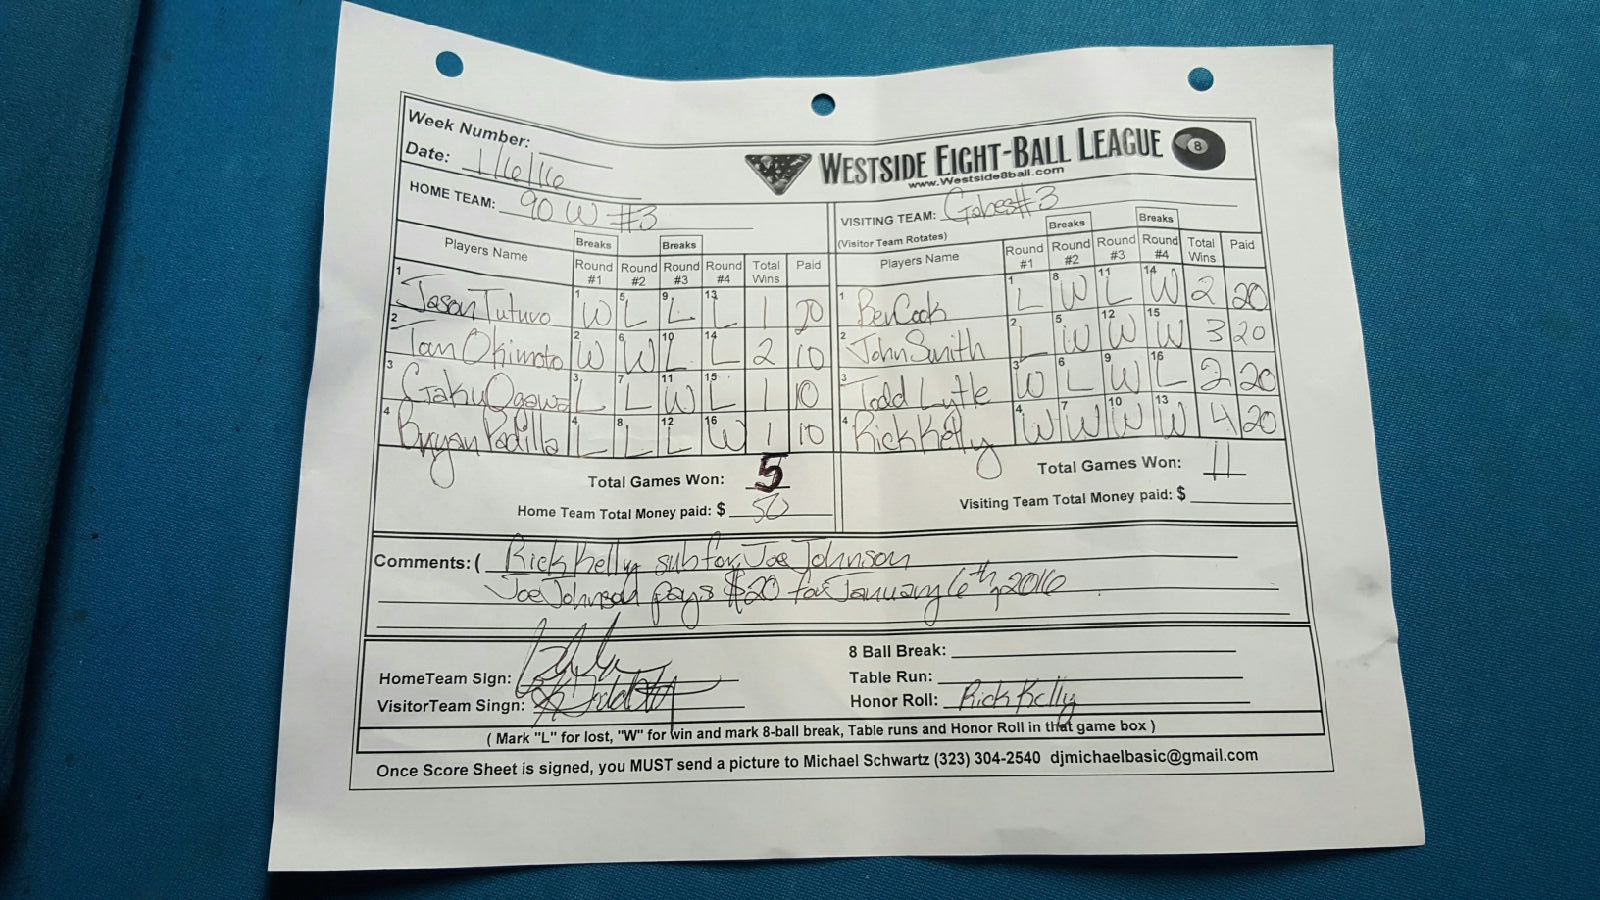 Week Number:
Date: 1/6/16
WESTSIDE EIGHT-BALL LEAGUE 8
www.Westside8ball.com
HOME TEAM: 90 W #3
VISITING TEAM: Gabes #3
(Visitor Team Rotates)
Players Name Breaks Round #1 Round #2 Breaks Round #3 Round #4 Total Wins Paid
1 Jason Tuturo 1 W 5 L 9 L 13 L 1 20
2 Tom Okimoto 2 W 6 W 10 L 14 L 2 10
3 Gaku Ogawa 3 L 7 L 11 W 15 L 1 10
4 Bryan Padilla 4 L 8 L 12 L 16 W 1 10
Total Games Won: 5
Home Team Total Money paid: $ 50
Players Name Round #1 Breaks Round #2 Round #3 Breaks Round #4 Total Wins Paid
1 Ben Cook 1 L 8 W 11 L 14 W 2 20
2 John Smith 2 L 5 W 12 W 15 W 3 20
3 Todd Lytle 3 W 6 L 9 W 16 L 2 20
4 Rick Kelly 4 W 7 W 10 W 13 W 4 20
Total Games Won: 11
Visiting Team Total Money paid: $
Comments: ( Rick Kelly sub for Joe Johnson
Joe Johnson pays $20 for January 6th, 2016
HomeTeam Sign:
VisitorTeam Singn:
8 Ball Break:
Table Run:
Honor Roll: Rick Kelly
( Mark "L" for lost, "W" for win and mark 8-ball break, Table runs and Honor Roll in that game box )
Once Score Sheet is signed, you MUST send a picture to Michael Schwartz (323) 304-2540 djmichaelbasic@gmail.com